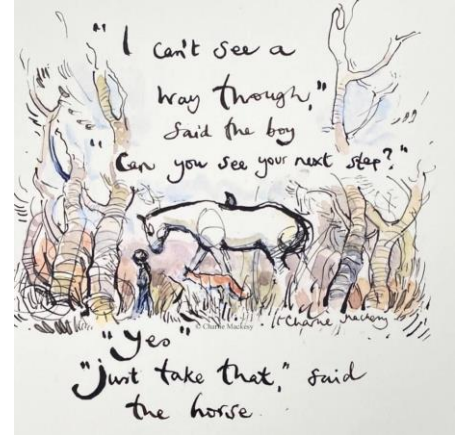 "I can't see a
way though,"
said the boy
"Can you see your next step?"
© Charlie Mackesy
Charlie Mackesy
"Yes"
"just take that," said
the horse.